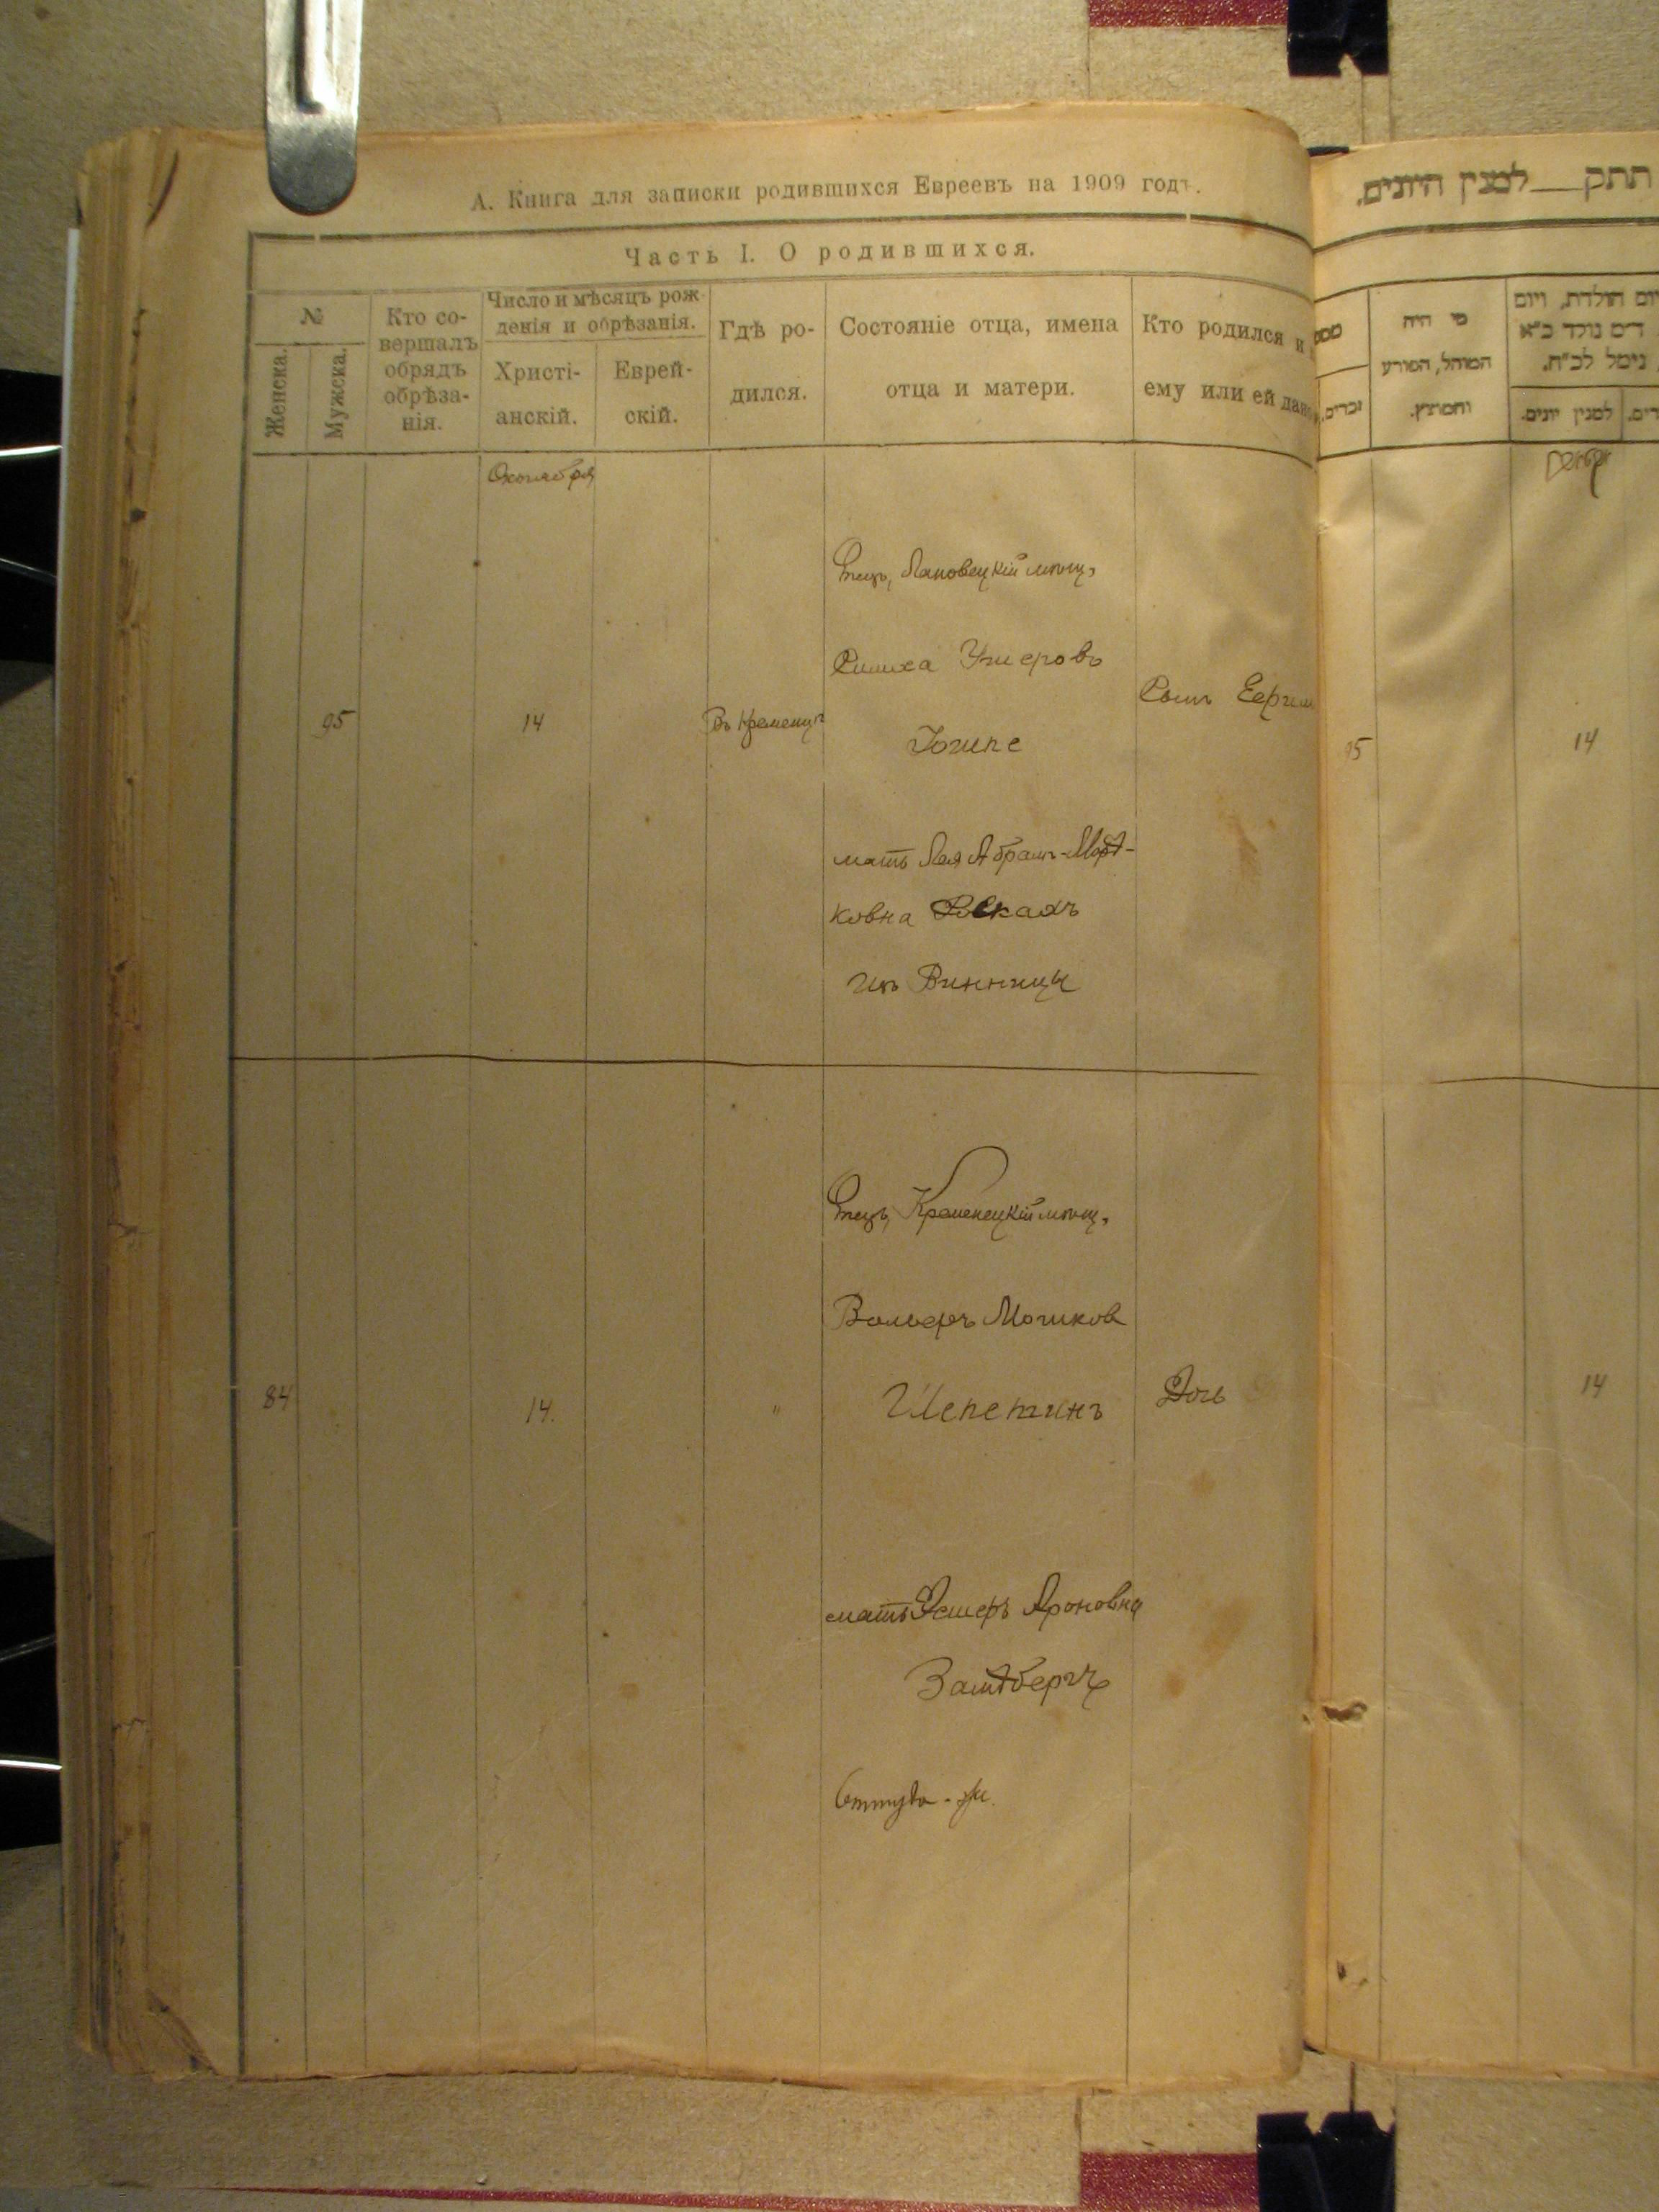 А. Книга для записки родившихся Евреевъ на 1909 годъ.
Часть I. О родившихся.
№
Женска.
Мужска.
Кто со-
вершалъ
обрядъ
обрѣза-
нія.
Число и мѣсяцъ рож-
денія и обрѣзанія.
Христі-
анскій.
Еврей-
скій.
Гдѣ ро-
дился.
Состояніе отца, имена
отца и матери.
Кто родился и
ему или ей дано
Октября
95
14
Въ Кременцѣ
Отецъ, Лановецкій мѣщ.
Симха Ушеровъ
мать Лея Абрамъ-Морд-
ковна
изъ Винницы
Сынъ
84
14.
"
Отецъ, Кременецкій мѣщ.
Вольфъ Мошков
Шепетинъ
мать Эстеръ Ароновна
Замдбергъ
Оттуда-же.
Дочь
תתק__למנין היונים.
מי היה
המוהל, הפורע
והמוצץ.
זכרים.
יום הולדת, ויום
ד״ס נולד ב״א
נימל לכ״ח.
למנין יונים.
95
14
14